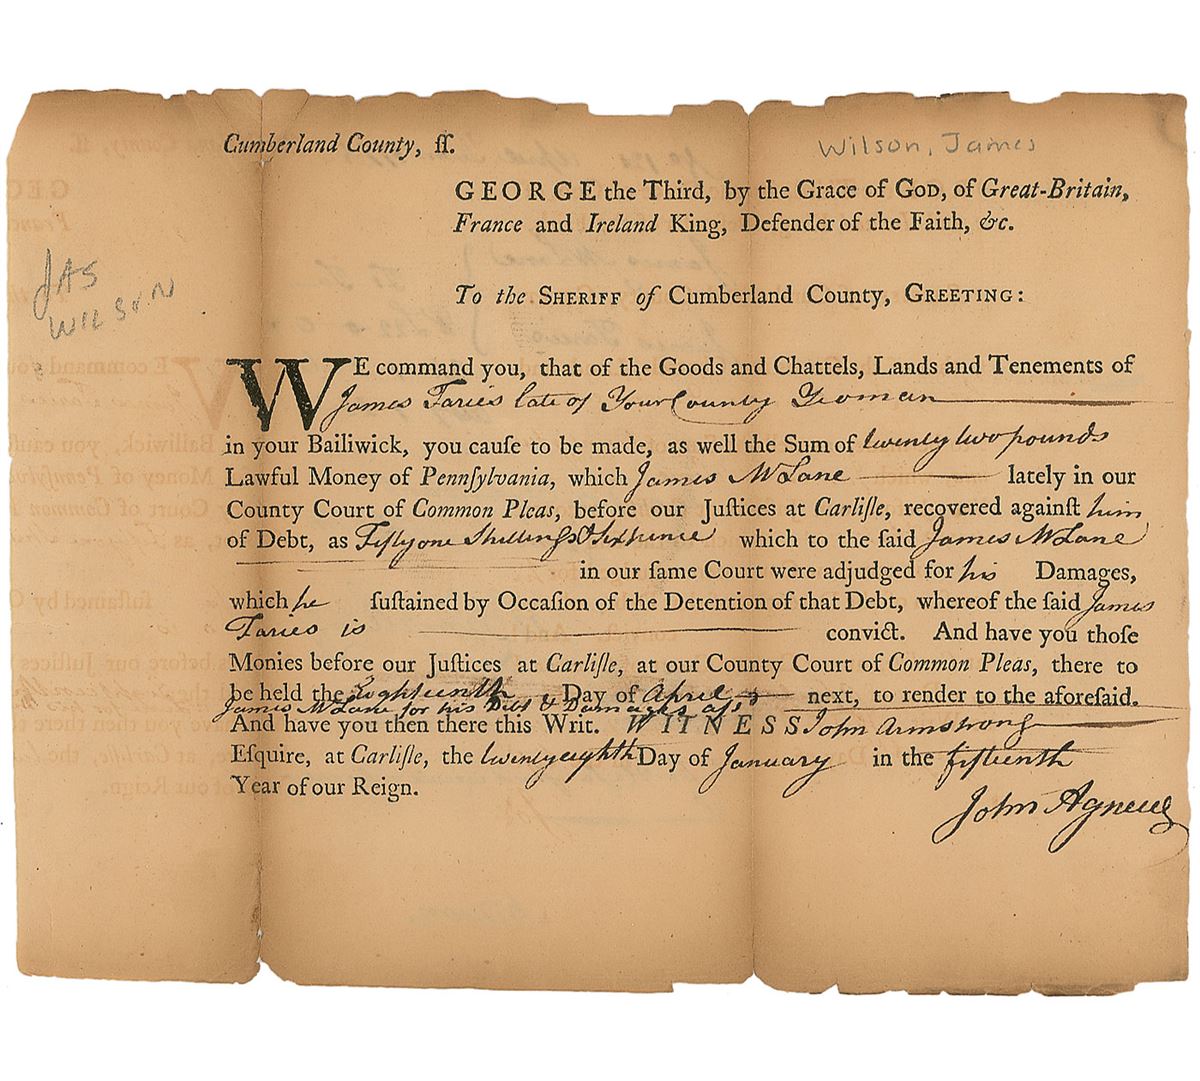 Cumberland County, ſſ.
Wilson, James
GEORGE the Third, by the Grace of GOD, of Great-Britain,
France and Ireland King, Defender of the Faith, &c.
JAS
WILSON
To the SHERIFF of Cumberland County, GREETING:
WE command you, that of the Goods and Chattels, Lands and Tenements of
James Faries late of Your County Yeoman
in your Bailiwick, you cauſe to be made, as well the Sum of twenty two pounds
Lawful Money of Pennſylvania, which James McLane lately in our
County Court of Common Pleas, before our Juſtices at Carliſle, recovered againſt him
of Debt, as Fifty one Shillings & sixpence which to the ſaid James McLane
in our ſame Court were adjudged for his Damages,
which he ſuſtained by Occaſion of the Detention of that Debt, whereof the ſaid James
Faries is convict. And have you thoſe
Monies before our Juſtices at Carliſle, at our County Court of Common Pleas, there to
be held the Eighteenth Day of April next, to render to the aforeſaid.
James McLane for his Debt & Damages afsd
And have you then there this Writ. WITNESS John Armstrong
Eſquire, at Carliſle, the twenty eighth Day of January in the fifteenth
Year of our Reign.
John Agnew